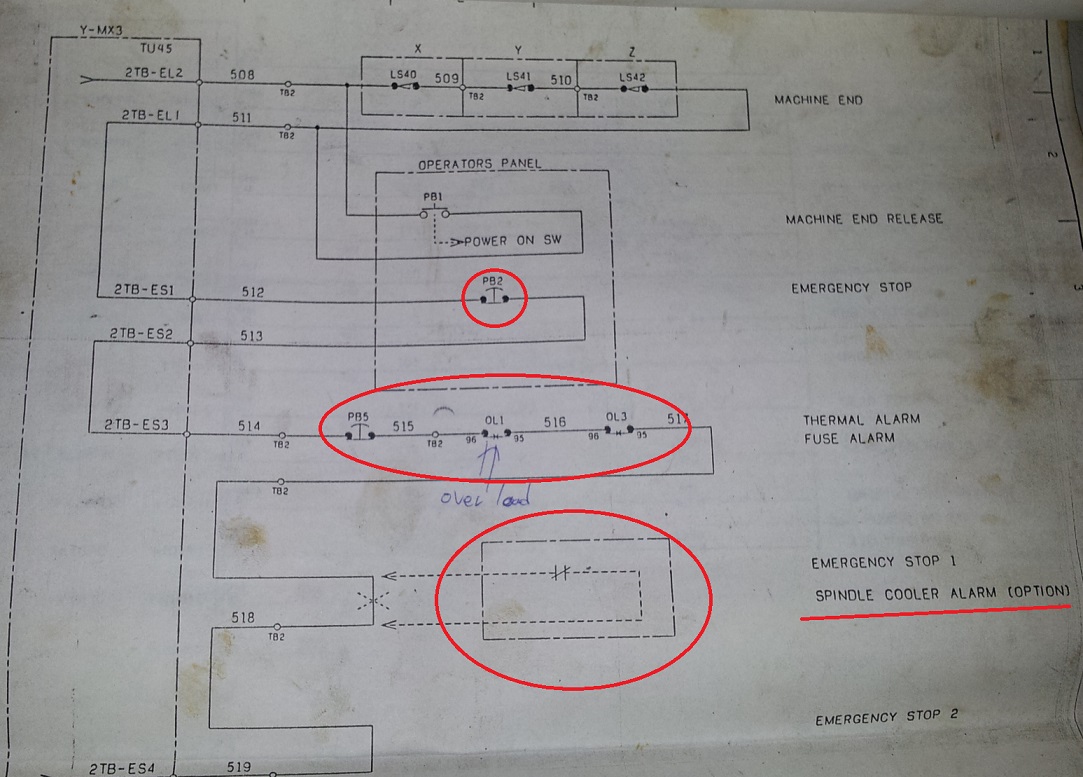 Y-MX3
TU45
X Y Z
2TB-EL2 508 TB2 LS40 509 TB2 LS41 510 TB2 LS42
MACHINE END
2TB-EL1 511 TB2
OPERATORS PANEL
PB1
MACHINE END RELEASE
POWER ON SW
PB2
2TB-ES1 512
EMERGENCY STOP
2TB-ES2 513
2TB-ES3 514 TB2 PB5 515 TB2 96 OL1 95 516 96 OL3 95 517
THERMAL ALARM
FUSE ALARM
TB2
over load
EMERGENCY STOP 1
SPINDLE COOLER ALARM (OPTION)
518
TB2
EMERGENCY STOP 2
2TB-ES4 519
1
2
3